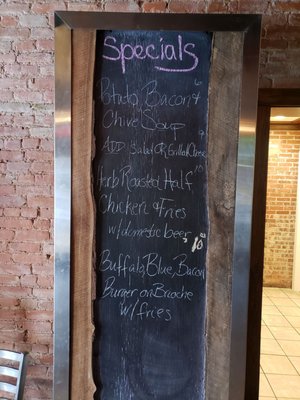 Specials
Potato, Bacon &
Chive Soup 6
ADD Salad OR Grilled Cheese 9
Herb Roasted Half 10
Chicken & Fries
w/domestic beer $10
Buffalo, Blue, Bacon
Burger on Brioche
w/fries